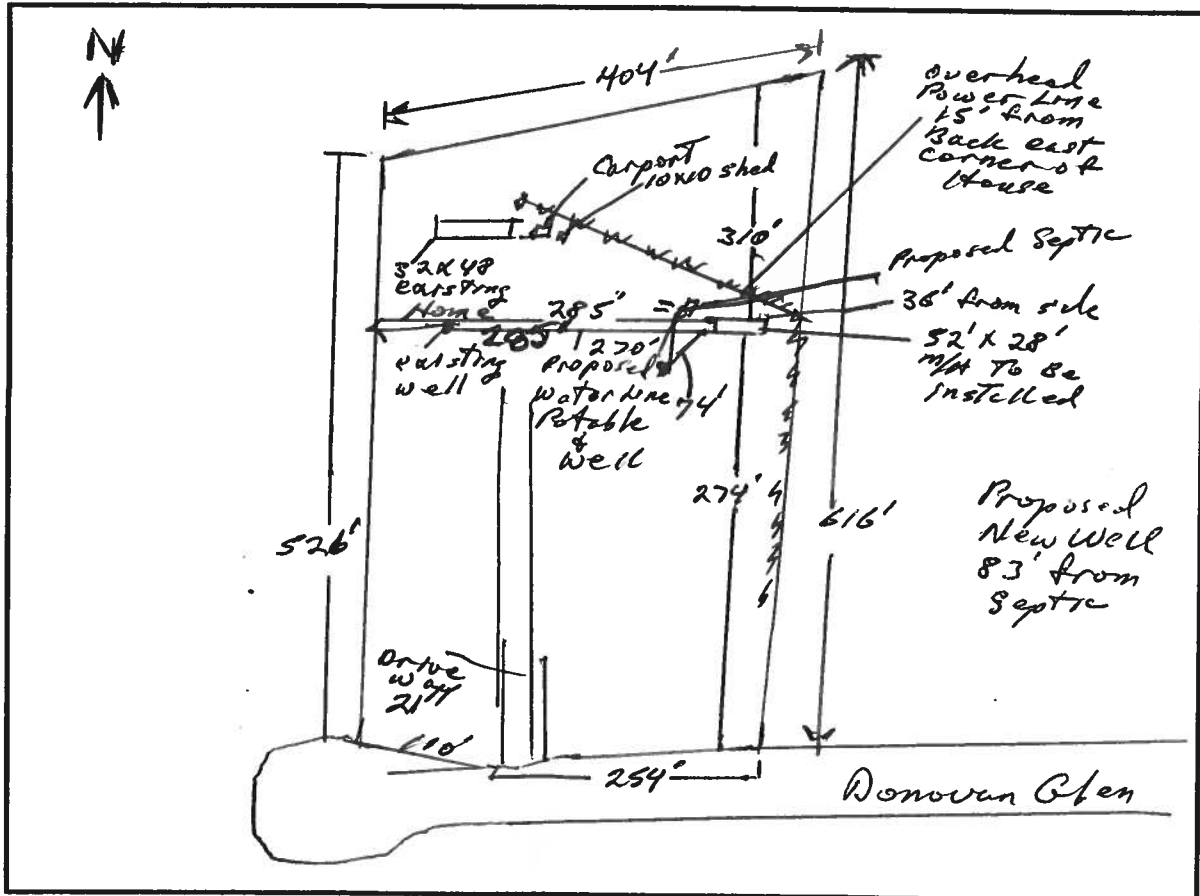 N
404'
overhead
Power Line
15' from
Back east
corner of
House
Carport
10x10 shed
310'
Proposed Septic
52x48
existing
Home
285'
36' from side
52' x 28'
m/H To Be
Installed
existing
well
270'
Proposed
water Line
Potable
&
Well
74'
274'
616'
526'
Proposed
New Well
83' from
Septic
Drive
way
21'
254'
Donovan Glen